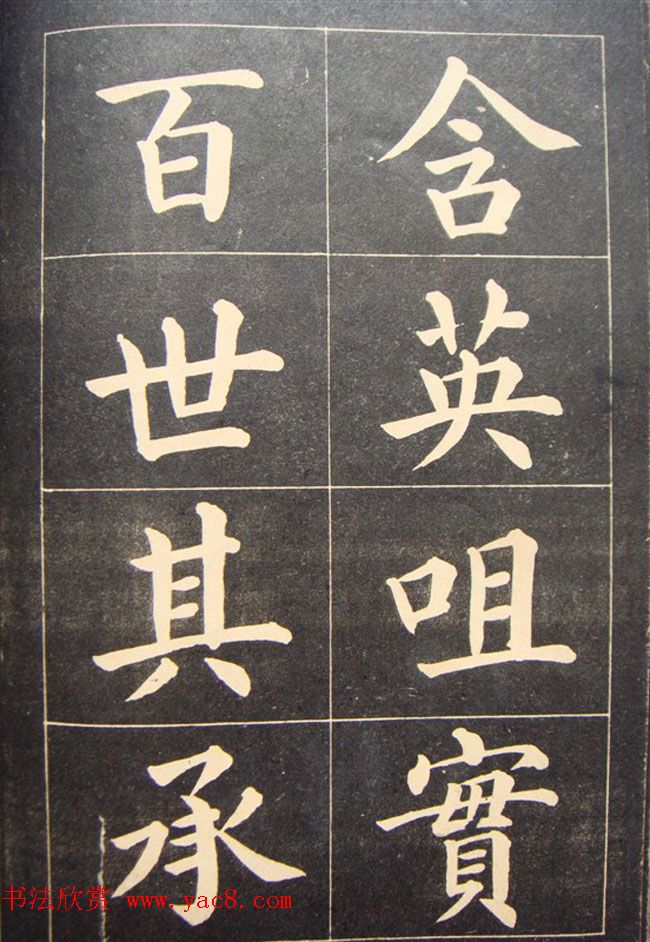 含英咀實
百世其承
书法欣赏 www.yac8.com